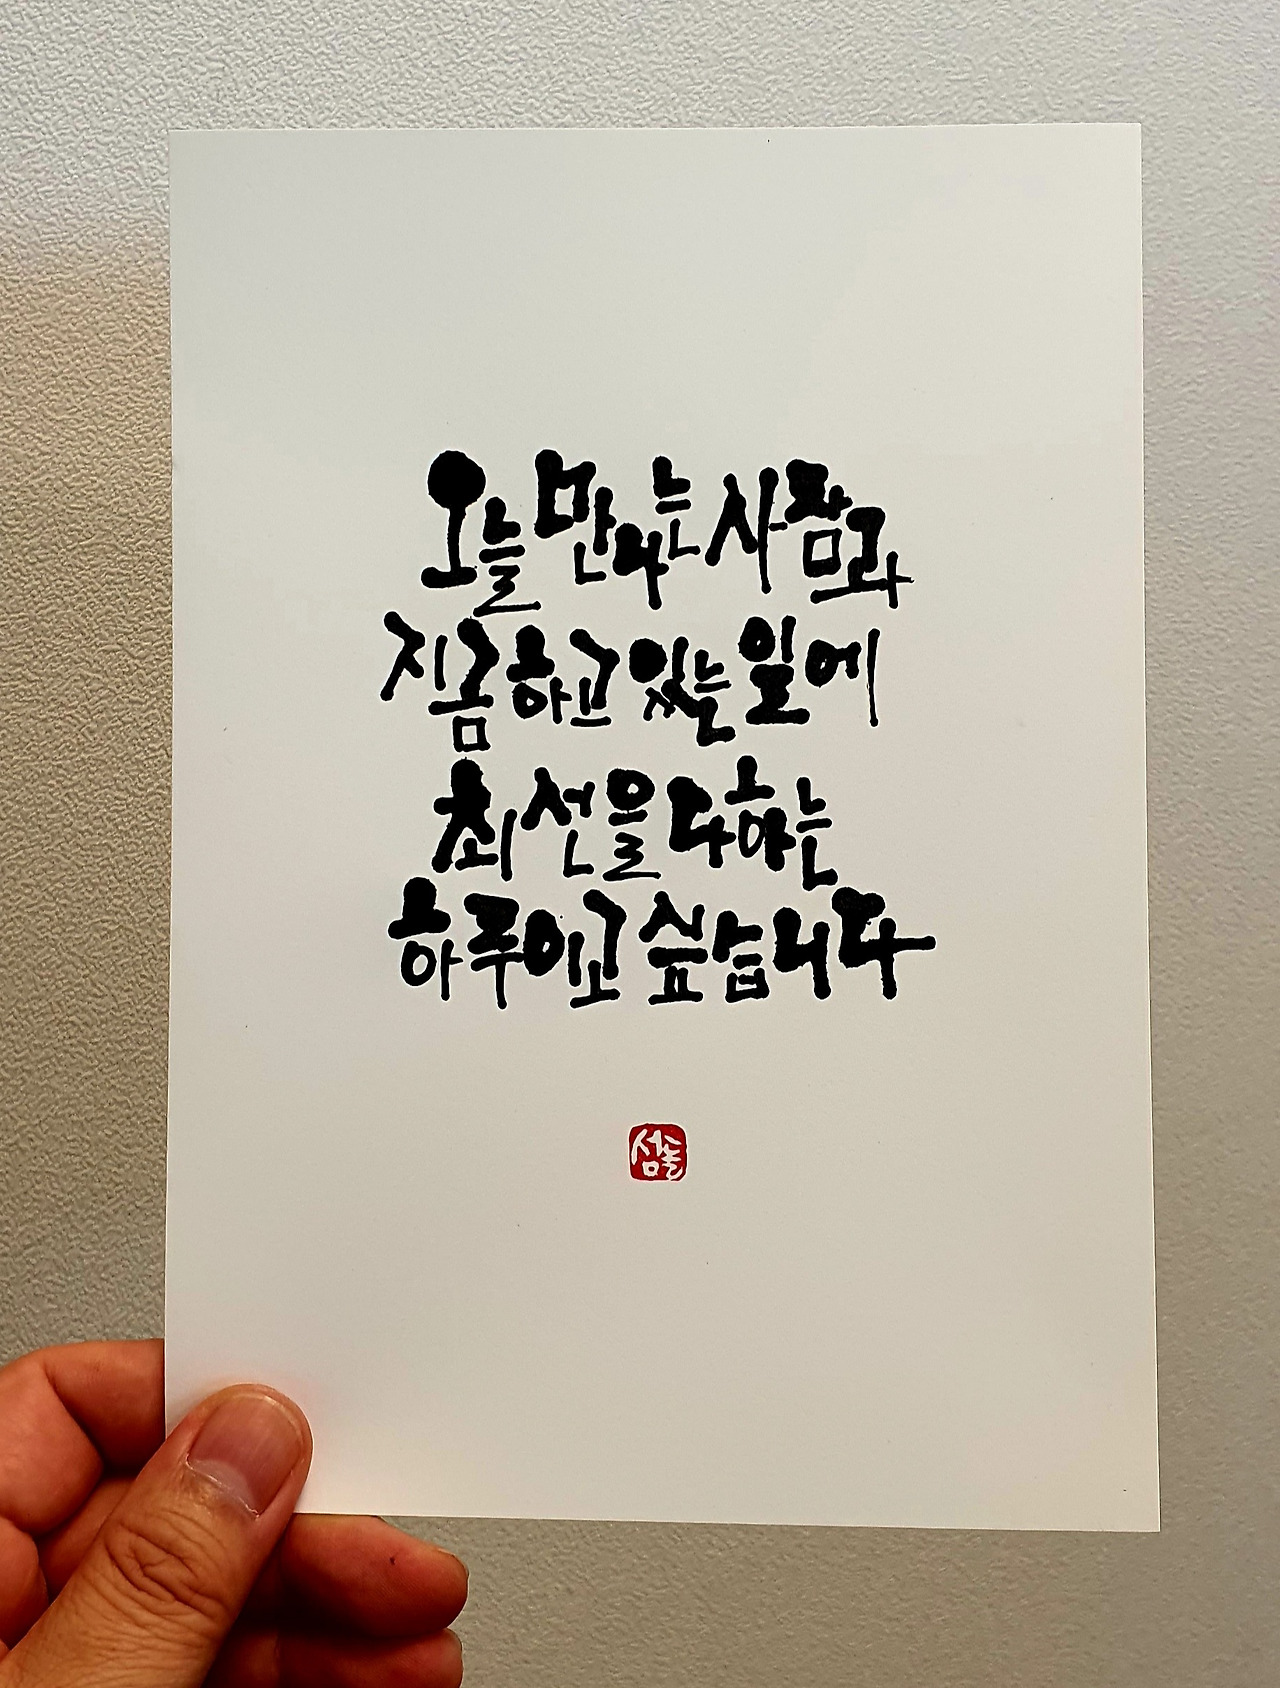 오늘 만나는 사람과
지금 하고 있는 일에
최선을 다하는
하루이고 싶습니다